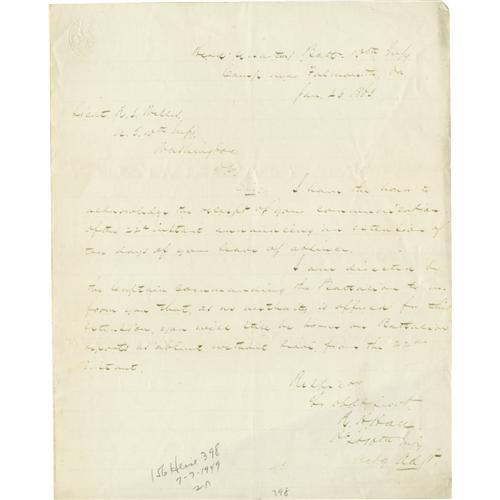 Head Quarters Batt. 10th Infy
Camp near Falmouth, Va
Jan. 25 1863
Lieut. R. S.
U. S. 10th Infy
Washington
D.C.
Sir, I have the honor to
acknowledge the receipt of your communication
of the 22d instant announcing an extension of
ten days of your leave of absence.
I am directed by
the Captain Commanding the Battalion to in-
form you that, as no authority is offered for this
extension you will still be borne on Battalion
reports as absent without leave from the 22nd
instant.
Respy
Yr obdt Servt
R. H. Hall
Lt 10th Infy
Actg Adjt.
156 398
7-7-1949
398